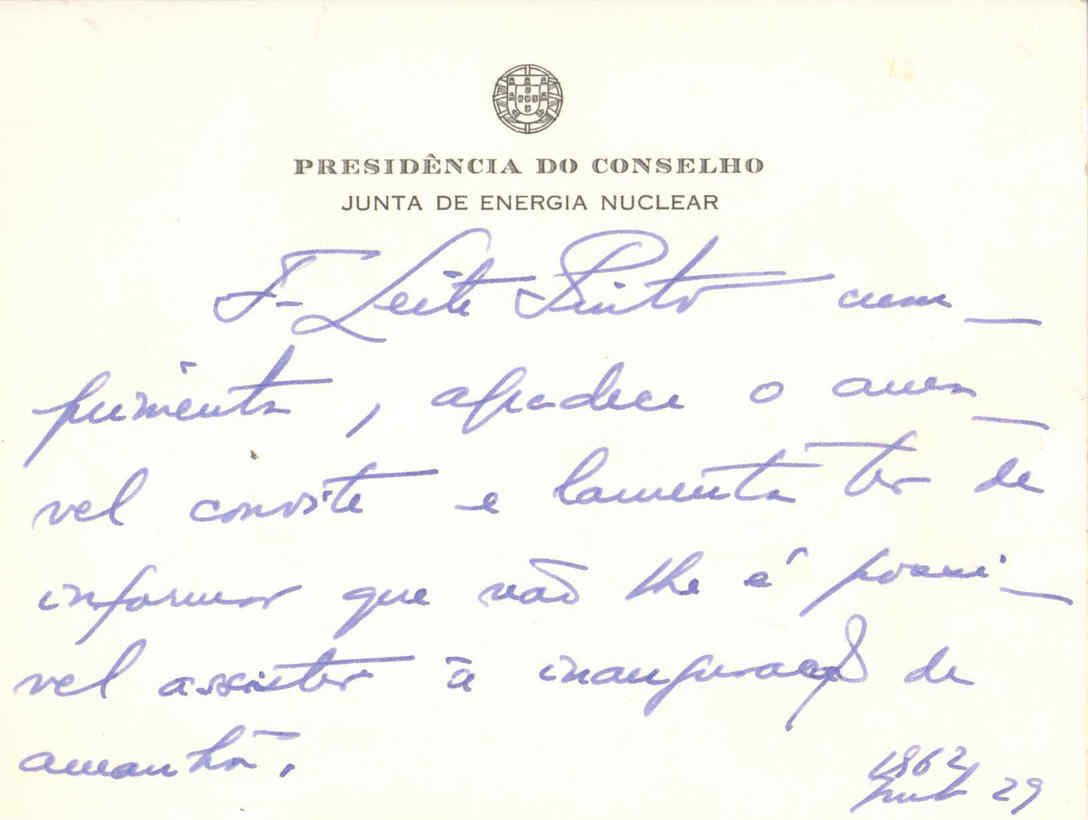 PRESIDÊNCIA DO CONSELHO
JUNTA DE ENERGIA NUCLEAR
F. Leite Pinto cum_
primenta, agradece o amá_
vel convite e lamenta ter de
informar que não lhe é possi_
vel assistir à inauguração de
amanhã.
1962
29